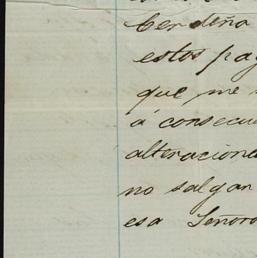 Cerdeña
estos pag
que me
á consecu
alteracione
no salgan
esa Señora